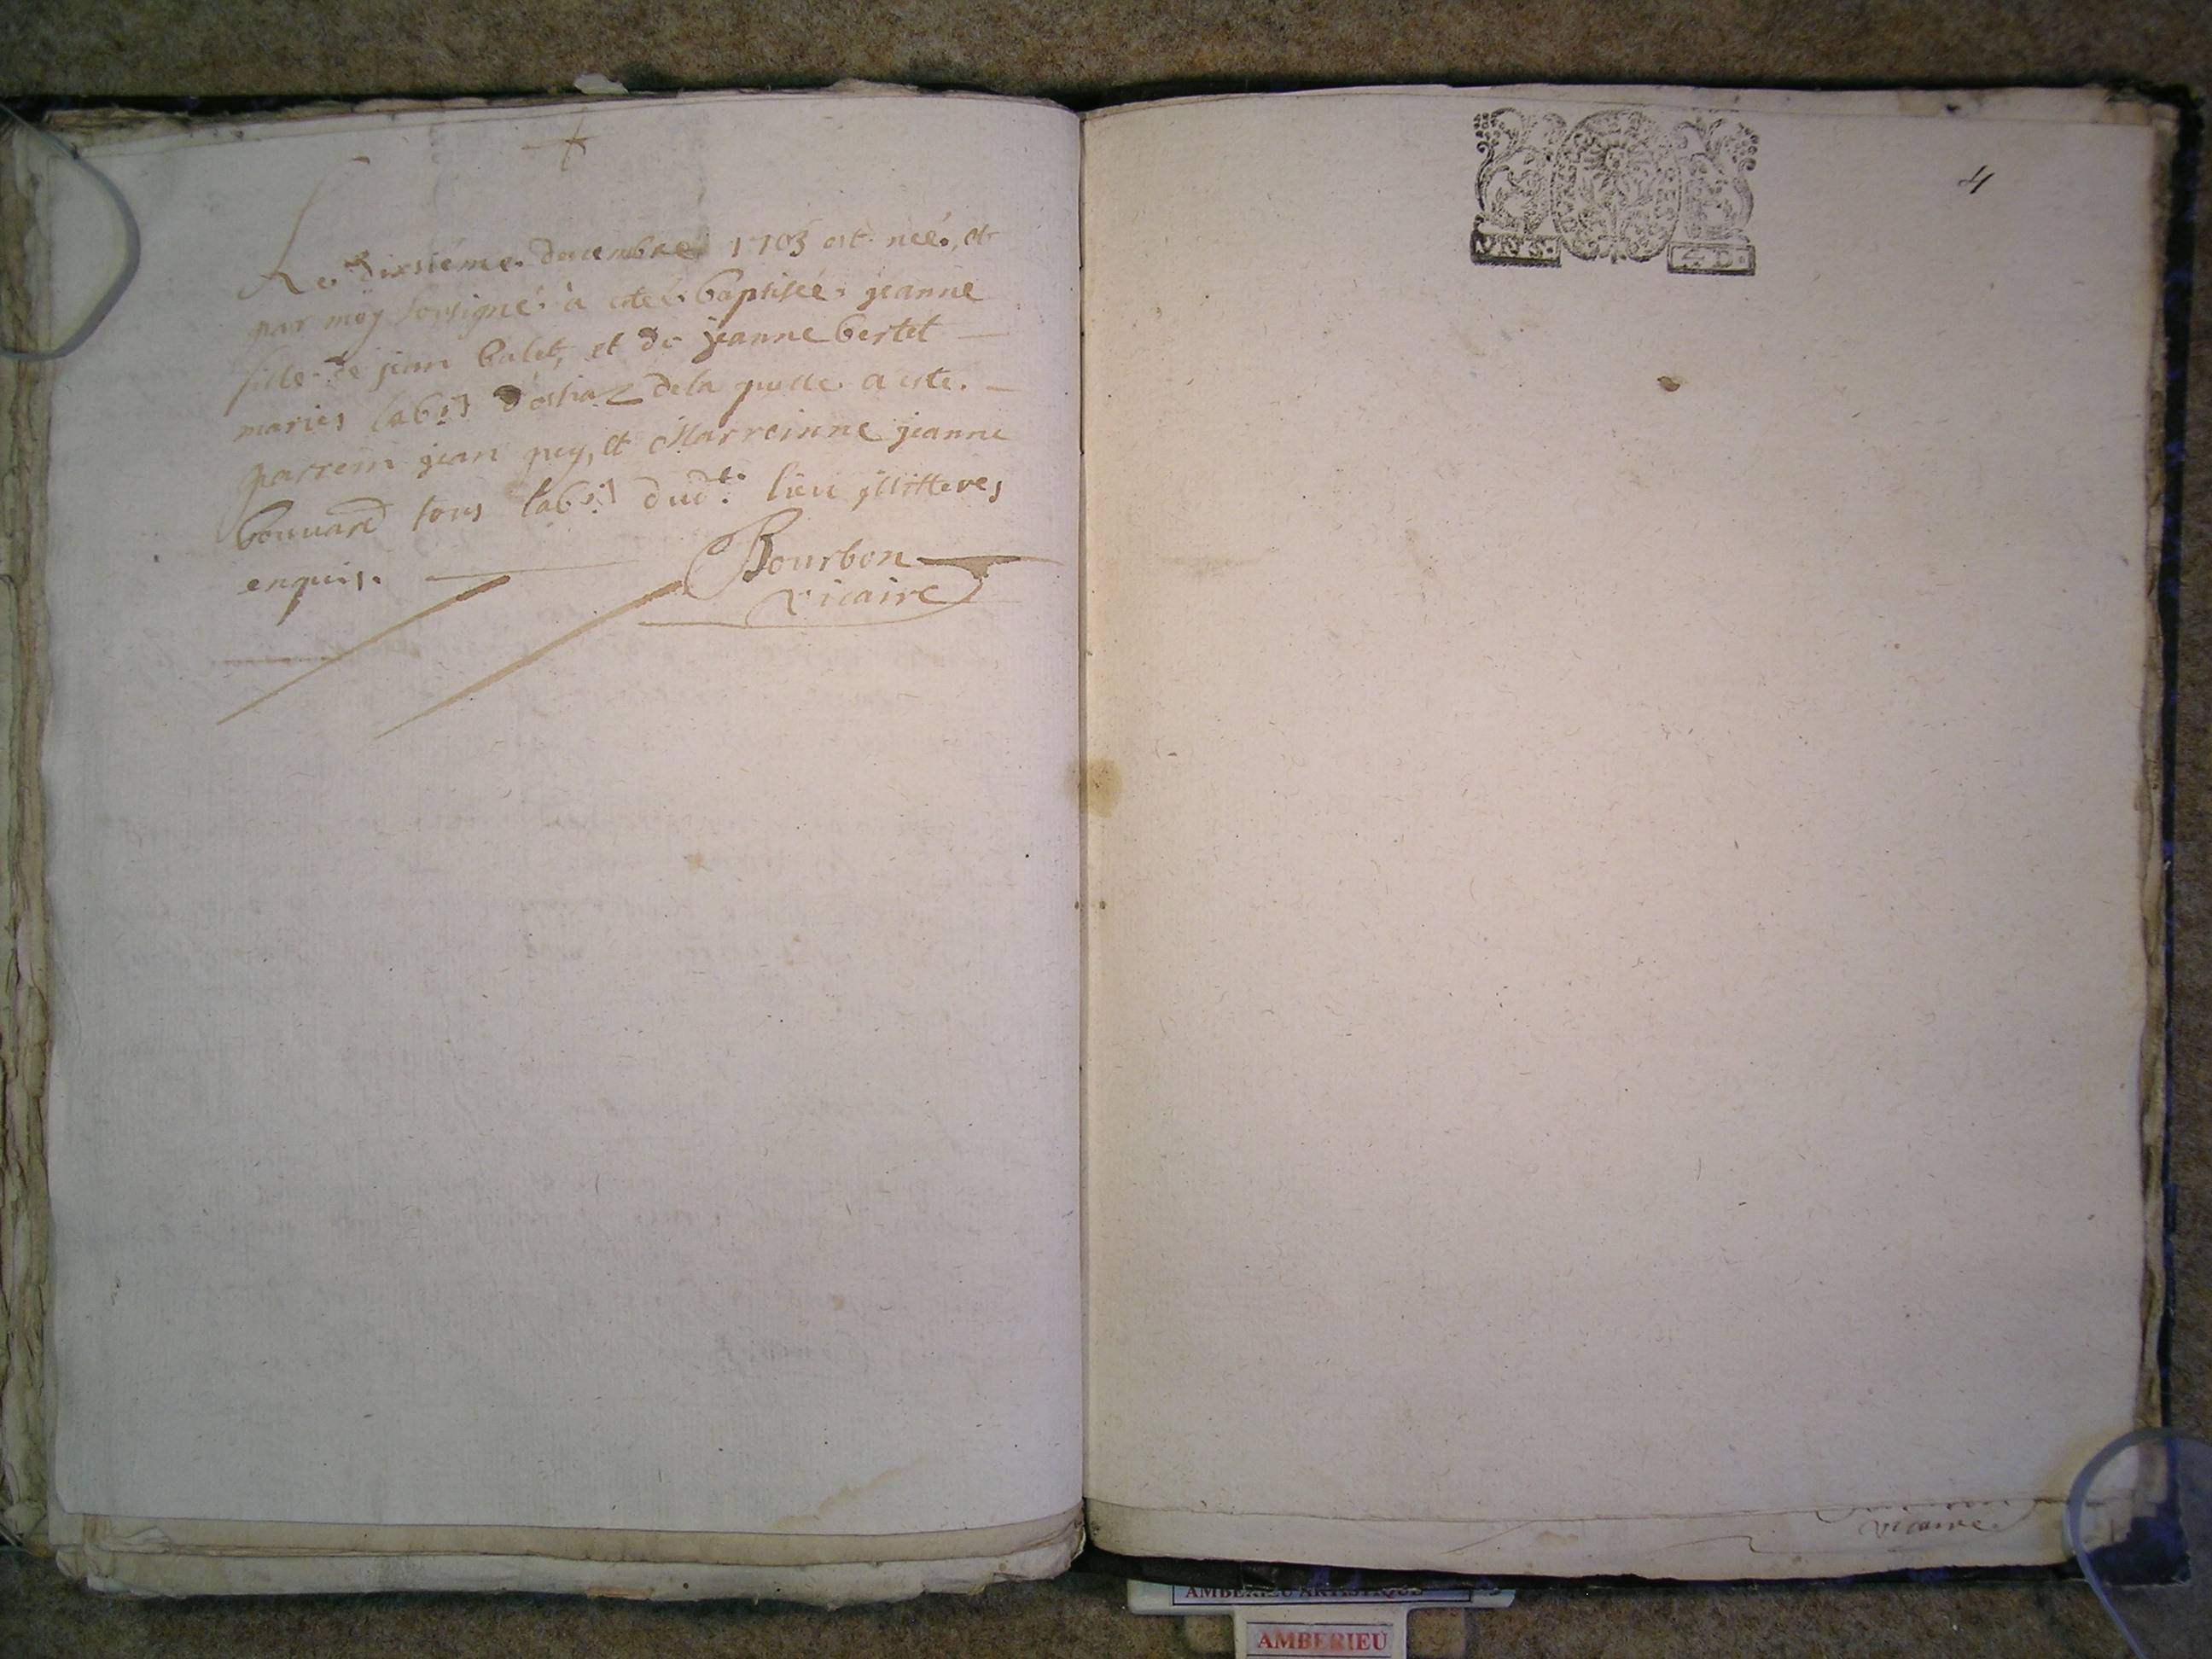 Le dixsiéme decembre 1703 est née, et
par moy soussigné à esteé baptisée jeanne
fille de jean balet, et de jeanne bertet
mariés lab.rs d'ostiaz de la quelle a este
parrein jean puy, et Marreinne jeanne
bouuard tous lab.rs dud.t lieu illitteres
enquis.
Bourbon
vicaire
4
4 D.
vicaire
AMBERIEU ARTISTIQUE
AMBERIEU